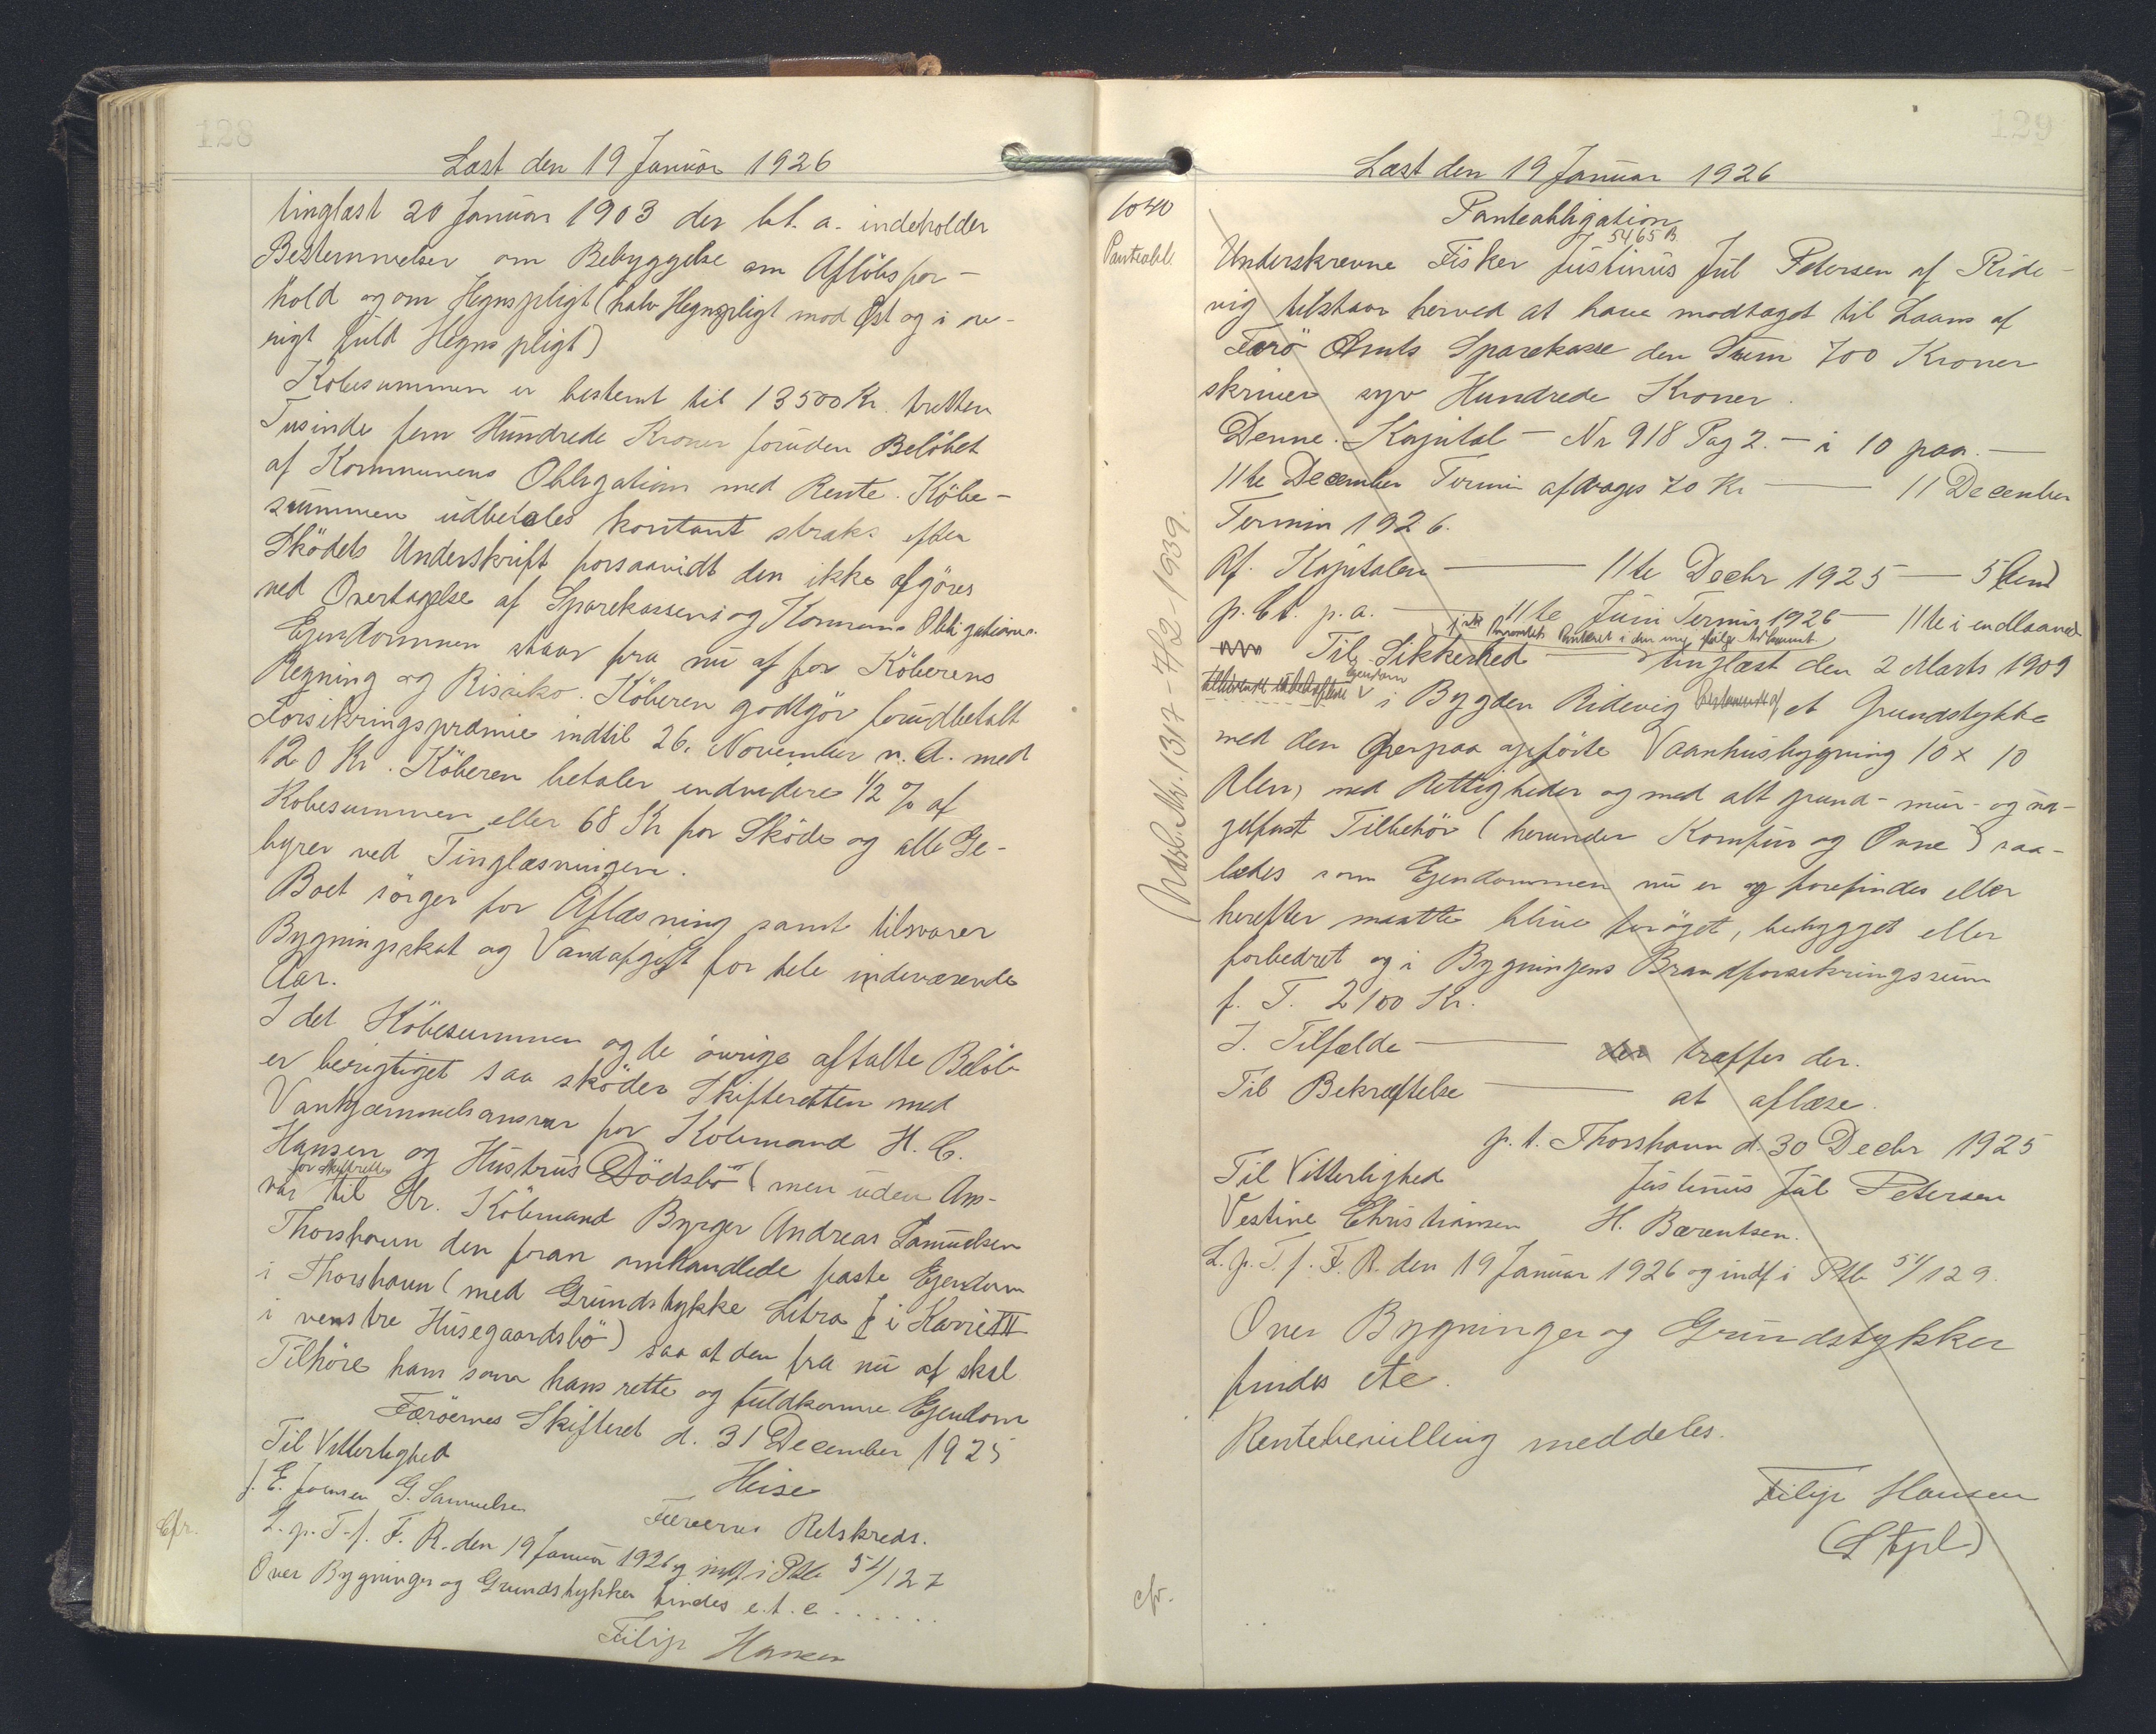 128
Læst den 19 Januar 1926
tinglæst 20 Januar 1903 der bl. a. indeholder
Bestemmelser om Bebyggelse om Aflöbsfor-
hold og om Hegnspligt (halv Hegnspligt mod Øst og i øv-
rigt fuld Hegnspligt)
Köbesummen er bestemt til 13500 Kr. tretten
Tusinde fem Hundrede Kroner foruden Belöbet
af Kommunens Obligation med Rente. Köbe-
summen udbetales kontant straks efter
Sködets Underskrift forsaavidt den ikke afgöres
ved Overtagelse af Sparekassens og Kommunens Obligationer.
Ejendommen staar fra nu af for Köberens
Regning og Risiko. Köberen godtgör forudbetalt
Forsikringspræmie indtil 26. November n. A. med
120 Kr. Köberen betaler endvidere 1/2 % af
Köbesummen eller 68 Kr for Sköde og alle Ge-
byrer ved Tinglæsningen.
Boet sörger for Aflæsning samt tilsvarer
Bygningsskat og Vandafgift for hele indeværende
Aar.
I det Köbesummen og de övrige aftalte Belöb
er berigtiget saa sköder Skifteretten med
Vanhjemmelsansvar for Köbmand H. C.
Hansen og Hustrus Dödsbo (men uden Ans-
for Skifteretten
var til Hr. Köbmand Byrger Andreas Samuelsen
Thorshavn den foran omhandlede faste Ejendom
i Thorshavn (med Grundstykke Litra f i Karré III
i venstre Husegaardsbö) saa at den fra nu af skal
Tilhöre ham som hans rette og fuldkomne Ejendom
Færöernes Skifteret d. 31 December 1925
Til Vitterlighed
Heise
J. E. Joensen G. Samuelsen
Færöernes Retskreds.
Cfr.
L. p. T. f. F. R. den 19 Januar 1926 og indf i Ptb 54/127
Over Bygninger og Grundstykker findes e.t.c......
Filip Hansen
129
Læst den 19 Januar 1926
1040
Panteobl.
Panteobligation
5465 B.
Underskrevne Fisker Justinus Jul Petersen af Ride-
vig tilstaar herved at have modtaget til Laans af
Færö Amts Sparekasse den Sum 700 Kroner
skriver syv Hundrede Kroner.
Denne. Kapital - Nr 918 Pag 2. - i 10 paa. —
11te December Termin afdrages 70 Kr — 11 December
Termin 1926.
Af. Kapitalen — 11te Decbr 1925 — 5 (fem)
p. Ct. p. a. — 11te Juni Termin 1926 — 11te i endlaand
Til Sikkerhed — tinglæst den 2 Marts 1909
Ejendom
i Bygden Ridevig et Grundstykke
med den derpaa opförte Vaanhusbygning 10 x 10
Alen, med Rettigheder og med alt grund- mur- og na-
gelfast Tilbehör (herunder Komfur og Ovne) saa-
ledes som Ejendommen nu er og forefindes eller
herefter maatte blive foröget, bebygget eller
forbedret og i Bygningens Brandforsikringssum
f. T. 2100 Kr.
I. Tilfælde — træffes der.
Til Bekræftelse — at aflæse.
p. t. Thorshavn d. 30 Decbr 1925
Til Vitterlighed Justinus Jul Petersen
Vestine Christiansen H. Bærentsen.
L. p. T. f. F. R. den 19 Januar 1926 og indf i Ptb 54/129.
Over Bygninger og Grundstykker
findes etc.
Rentebevilling meddeles.
Filip Hansen
(Stpl)
cfr.
Udsl. Nr. 1317 - 7/2-1939.